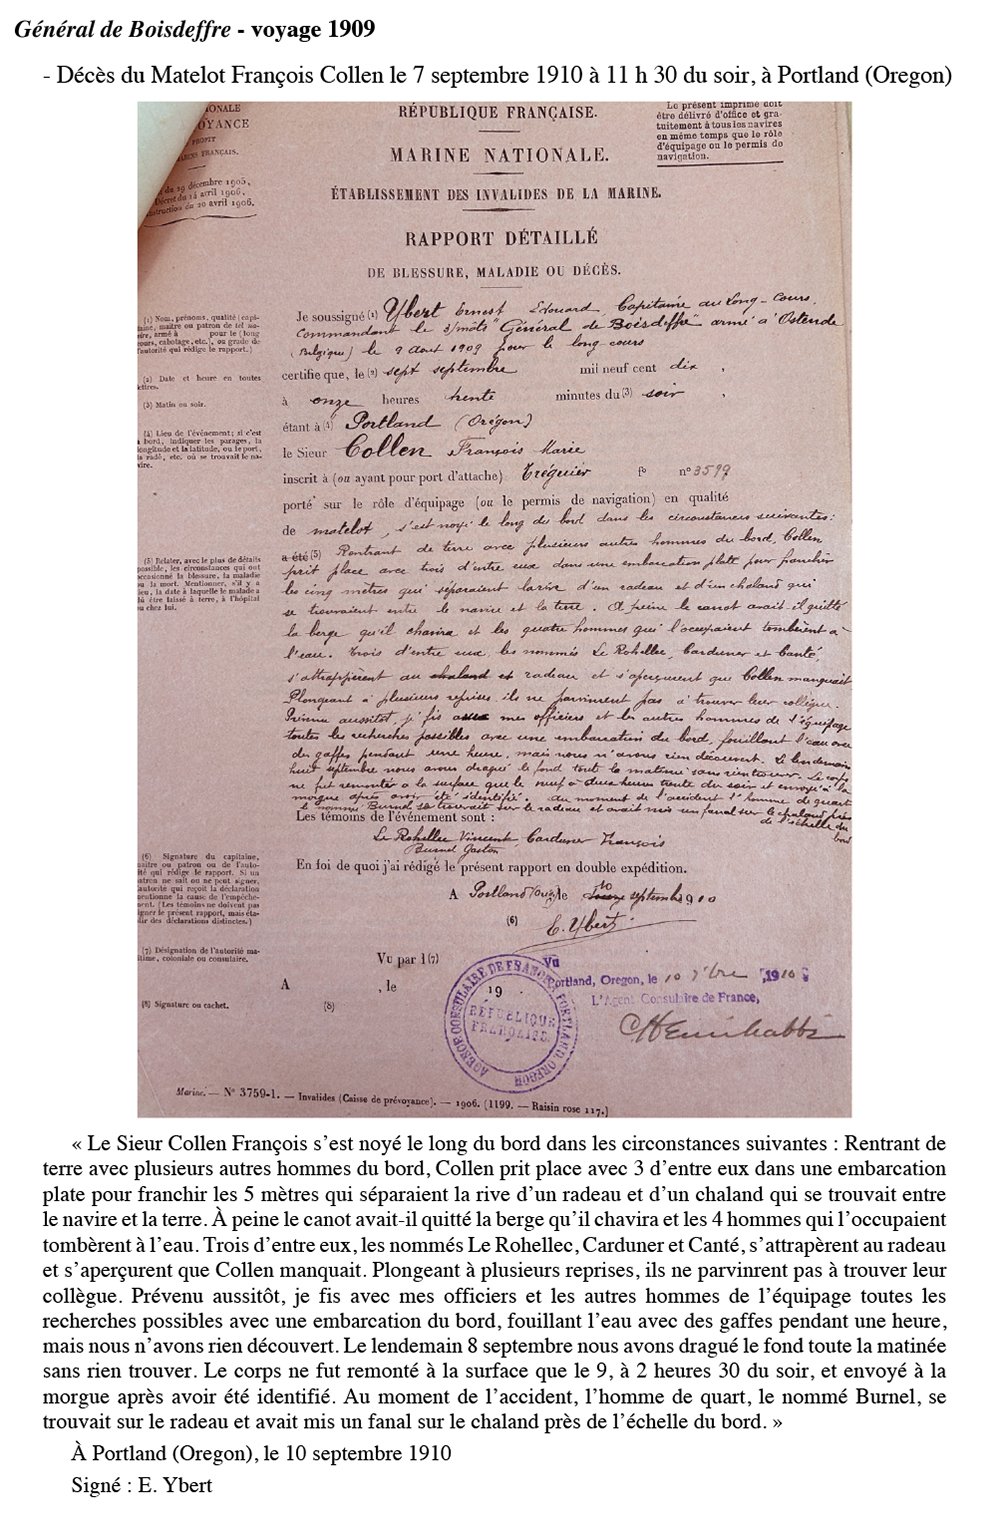 Général de Boisdeffre - voyage 1909
- Décès du Matelot François Collen le 7 septembre 1910 à 11 h 30 du soir, à Portland (Oregon)
ONALE
OYANCE
PROFIT
MARINS FRANÇAIS.
du 29 décembre 1905,
Décret du 14 avril 1906.
Instruction du 20 avril 1906.
RÉPUBLIQUE FRANÇAISE.
MARINE NATIONALE.
ÉTABLISSEMENT DES INVALIDES DE LA MARINE.
RAPPORT DÉTAILLÉ
DE BLESSURE, MALADIE OU DÉCÈS.
Le présent imprimé doit
être délivré d'office et gra-
tuitement à tous les navires
en même temps que le rôle
d'équipage ou le permis de
navigation.
Je soussigné (1) Ybert Ernest Edouard Capitaine au Long-Cours,
Commandant le 3/mâts "Général de Boisdeffre" armé à Ostende
(Belgique) le 9 Aout 1909 pour le long cours
certifie que, le (2) sept septembre mil neuf cent dix,
à onze heures trente minutes du (3) soir,
étant à (4) Portland (Orégon)
le Sieur Collen François Marie
inscrit à (ou ayant pour port d'attache) Tréguier fo n° 3599
porté sur le rôle d'équipage (ou le permis de navigation) en qualité
de matelot, s'est noyé le long du bord dans les circonstances suivantes :
a été (5) Rentrant de terre avec plusieurs autres hommes du bord, Collen
prit place avec trois d'entre eux dans une embarcation plate pour franchir
les cinq mètres qui séparaient la rive d'un radeau et d'un chaland qui
se trouvaient entre le navire et la terre. A peine le canot avait-il quitté
la berge qu'il chavira et les quatre hommes qui l'occupaient tombèrent à
l'eau. Trois d'entre eux les nommés Le Rohellec, Carduner et Canté,
s'attrappèrent au chaland et radeau et s'aperçurent que Collen manquait
Plongeant à plusieurs reprises ils ne parvinrent pas à trouver leur collègue.
Prévenu aussitôt, je fis avec mes officiers et les autres hommes de l'équipage
toutes les recherches possibles avec une embarcation du bord, fouillant l'eau avec
des gaffes pendant une heure, mais nous n'avons rien découvert. Le lendemain
huit septembre nous avons dragué le fond toute la matinée sans rien trouver. Le corps
ne fut remonté à la surface que le neuf à deux heures trente du soir et envoyé à la
morgue après avoir été identifié. Au moment de l'accident l'homme de quart
le nommé Burnel se trouvait sur le radeau et avait mis un fanal sur le chaland près
de l'échelle du
bord
Les témoins de l'événement sont :
Le Rohellec Vincent Carduner François
Burnel Gaston
En foi de quoi j'ai rédigé le présent rapport en double expédition.
A Portland le septembre 1910
(6) E. Ybert
(1) Nom, prénoms, qualité (capi-
taine, maître ou patron de tel na-
vire, armé à pour le (long
cours, cabotage, etc.), ou grade de
l'autorité qui rédige le rapport.)
(2) Date et heure en toutes
lettres.
(3) Matin ou soir.
(4) Lieu de l'événement; si c'est
à bord, indiquer les parages, la
longitude et la latitude, ou le port,
la rade, etc. où se trouvait le na-
vire.
(5) Relater, avec le plus de détails
possible, les circonstances qui ont
occasionné la blessure, la maladie
ou la mort. Mentionner, s'il y a
lieu, la date à laquelle le malade a
dû être laissé à terre, à l'hôpital
ou chez lui.
(6) Signature du capitaine,
maître ou patron ou de l'auto-
rité qui rédige le rapport. Si un
patron ne sait ou ne peut signer,
l'autorité qui reçoit la déclaration
mentionne la cause de l'empêche-
ment. (Les témoins ne doivent pas
signer le présent rapport, mais éta-
blir des déclarations distinctes.)
(7) Désignation de l'autorité ma-
ritime, coloniale ou consulaire.
(8) Signature ou cachet.
Vu par l (7)
A , le 19 .
(8)
AGENCE CONSULAIRE DE FRANCE, PORTLAND, OREGON
RÉPUBLIQUE
FRANÇAISE.
Vu
Portland, Oregon, le 10 7bre 1910
L'Agent Consulaire de France,
Marine. — N° 3759-1. — Invalides (Caisse de prévoyance). — 1906. (1199. — Raisin rose 117.)
« Le Sieur Collen François s'est noyé le long du bord dans les circonstances suivantes : Rentrant de
terre avec plusieurs autres hommes du bord, Collen prit place avec 3 d'entre eux dans une embarcation
plate pour franchir les 5 mètres qui séparaient la rive d'un radeau et d'un chaland qui se trouvait entre
le navire et la terre. À peine le canot avait-il quitté la berge qu'il chavira et les 4 hommes qui l'occupaient
tombèrent à l'eau. Trois d'entre eux, les nommés Le Rohellec, Carduner et Canté, s'attrapèrent au radeau
et s'aperçurent que Collen manquait. Plongeant à plusieurs reprises, ils ne parvinrent pas à trouver leur
collègue. Prévenu aussitôt, je fis avec mes officiers et les autres hommes de l'équipage toutes les
recherches possibles avec une embarcation du bord, fouillant l'eau avec des gaffes pendant une heure,
mais nous n'avons rien découvert. Le lendemain 8 septembre nous avons dragué le fond toute la matinée
sans rien trouver. Le corps ne fut remonté à la surface que le 9, à 2 heures 30 du soir, et envoyé à la
morgue après avoir été identifié. Au moment de l'accident, l'homme de quart, le nommé Burnel, se
trouvait sur le radeau et avait mis un fanal sur le chaland près de l'échelle du bord. »
À Portland (Oregon), le 10 septembre 1910
Signé : E. Ybert